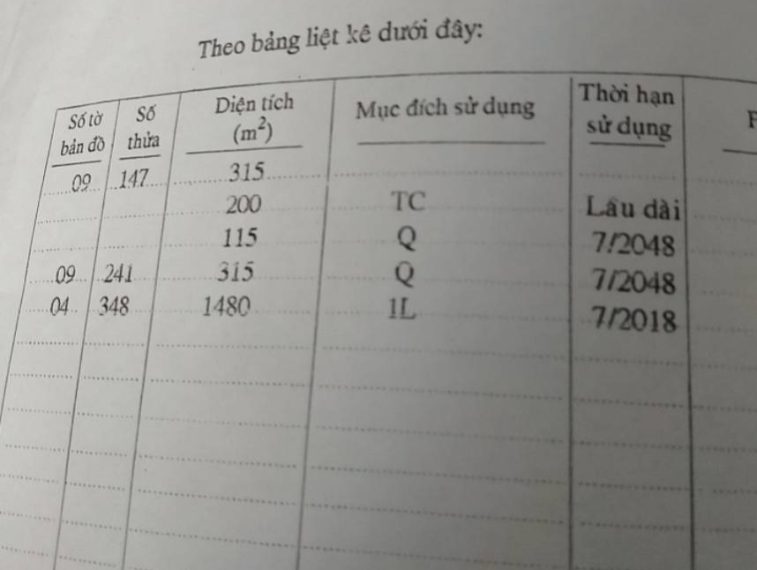 Theo bảng liệt kê dưới đây:
Số tờ bản đồ Số thửa Diện tích (m²) Mục đích sử dụng Thời hạn sử dụng
09 147 315
200 TC Lâu dài
115 Q 7/2048
09 241 315 Q 7/2048
04 348 1480 1L 7/2018